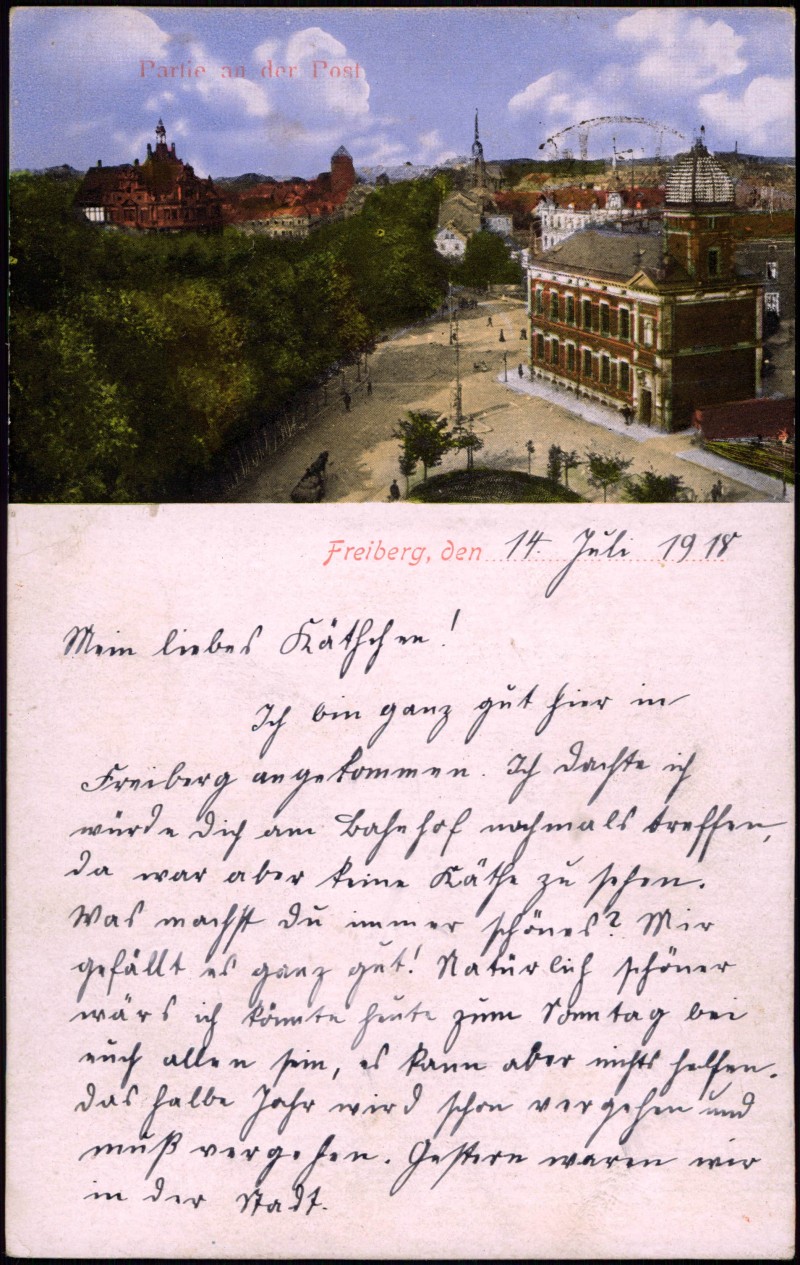 Partie an der Post
Freiberg, den 14. Juli 1918
Mein liebes Käthchen!
Ich bin ganz gut hier in
Freiberg angekommen. Ich dachte ich
würde dich am Bahnhof nochmals treffen,
da war aber keine Käthe zu sehen.
Was machst du immer schönes? Mir
gefällt es ganz gut! Natürlich schöner
wärs ich könnte heute zum Sonntag bei
euch allen sein, es kann aber nichts helfen.
das halbe Jahr wird schon vergehen und
muß vergehen. Gestern waren wir
in der Stadt.